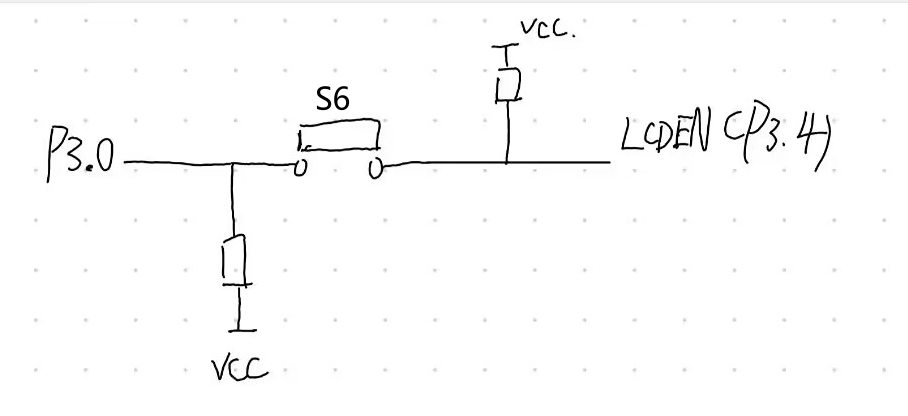 VCC.
S6
P3.0
LCDEN (P3.4)
VCC